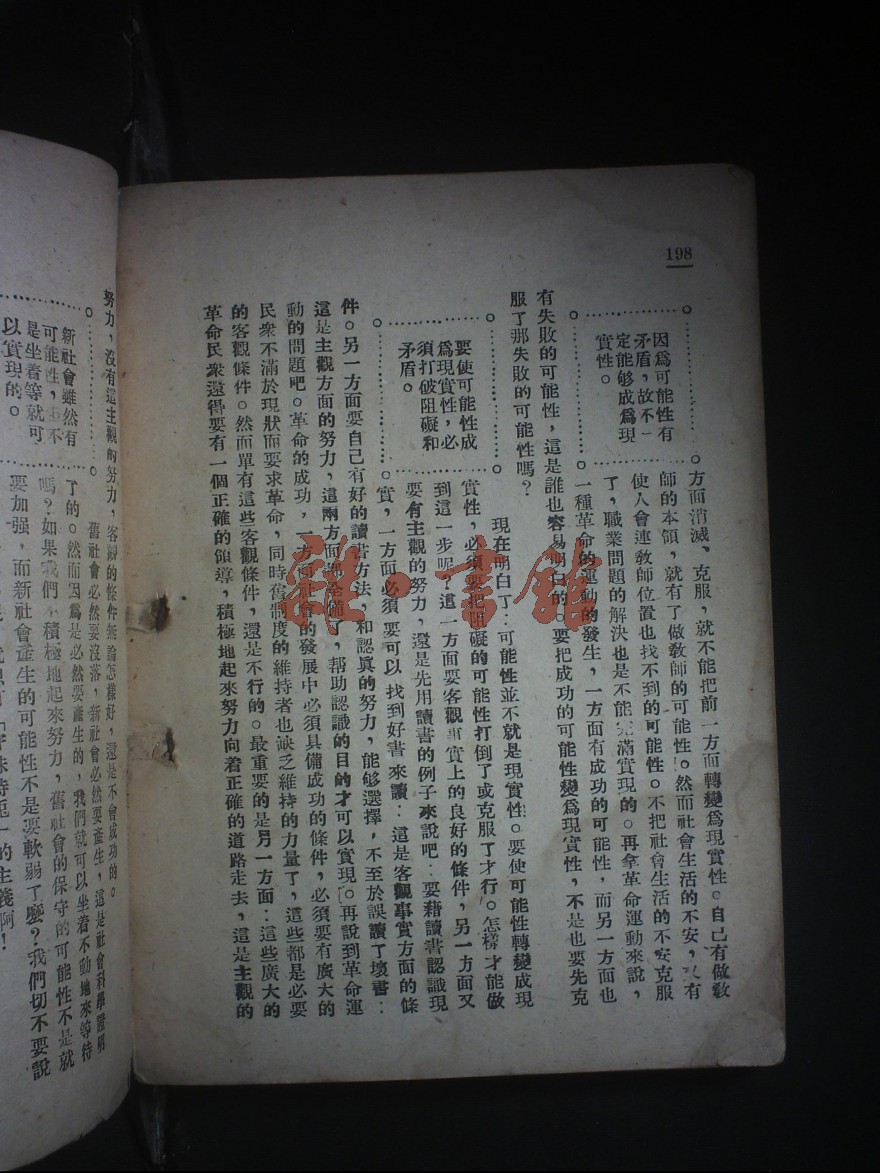 198
因爲可能性有
矛盾，故不一
定能够成爲現
實性。
方面消滅、克服，就不能把前一方面轉變爲現實性。自己有做教
師的本領，就有了做教師的可能性。然而社會生活的不安，又有
使人會連教師位置也找不到的可能性。不把社會生活的不安克服
了，職業問題的解決也是不能完滿實現的。再拿革命運動來說，
一種革命的運動的發生，一方面有成功的可能性，而另一方面也
有失敗的可能性，這是誰也容易明白的。要把成功的可能性變爲現實性，不是也要先克
服了那失敗的可能性嗎？
要使可能性成
爲現實性，必
須打破阻礙和
矛盾。
現在明白了：可能性並不就是現實性。要使可能性轉變成現
實性，必須要把阻礙的可能性打倒了或克服了才行。怎樣才能做
到這一步呢？這一方面要客觀事實上的良好的條件，另一方面又
要有主觀的努力，還是先用讀書的例子來說吧：要藉讀書認識現
實，一方面必須要可以找到好書來讀：這是客觀事實方面的條
件。另一方面要自己有好的讀書方法，和認真的努力，能够選擇，不至於誤讀了壞書：
這是主觀方面的努力，這兩方面都全備了，幫助認識的目的才可以實現。再說到革命運
動的問題吧。革命的成功，一方面社會的發展中必須具備成功的條件，必須要有廣大的
民衆不滿於現狀而要求革命，同時舊制度的維持者也缺乏維持的力量了，這些都是必要
的客觀條件。然而單有這些客觀條件，還是不行的。最重要的是另一方面：這些廣大的
革命民衆還得要有一個正確的領導，積極地起來努力向着正確的道路走去，這是主觀的
努力，沒有這主觀的努力，客觀的條件無論怎樣好，還是不會成功的。
新社會雖然有
可能性，不
是坐着等就可
以實現的。
舊社會必然要沒落，新社會必然要產生，這是社會科學證明
了的。然而因爲是必然要產生的，我們就可以坐着不動地來等待
嗎？如果我們不積極地起來努力，舊社會的保守的可能性不是就
要加强，而新社會產生的可能性不是要軟弱了麼？我們切不要說
的主義啊！
雜·書館